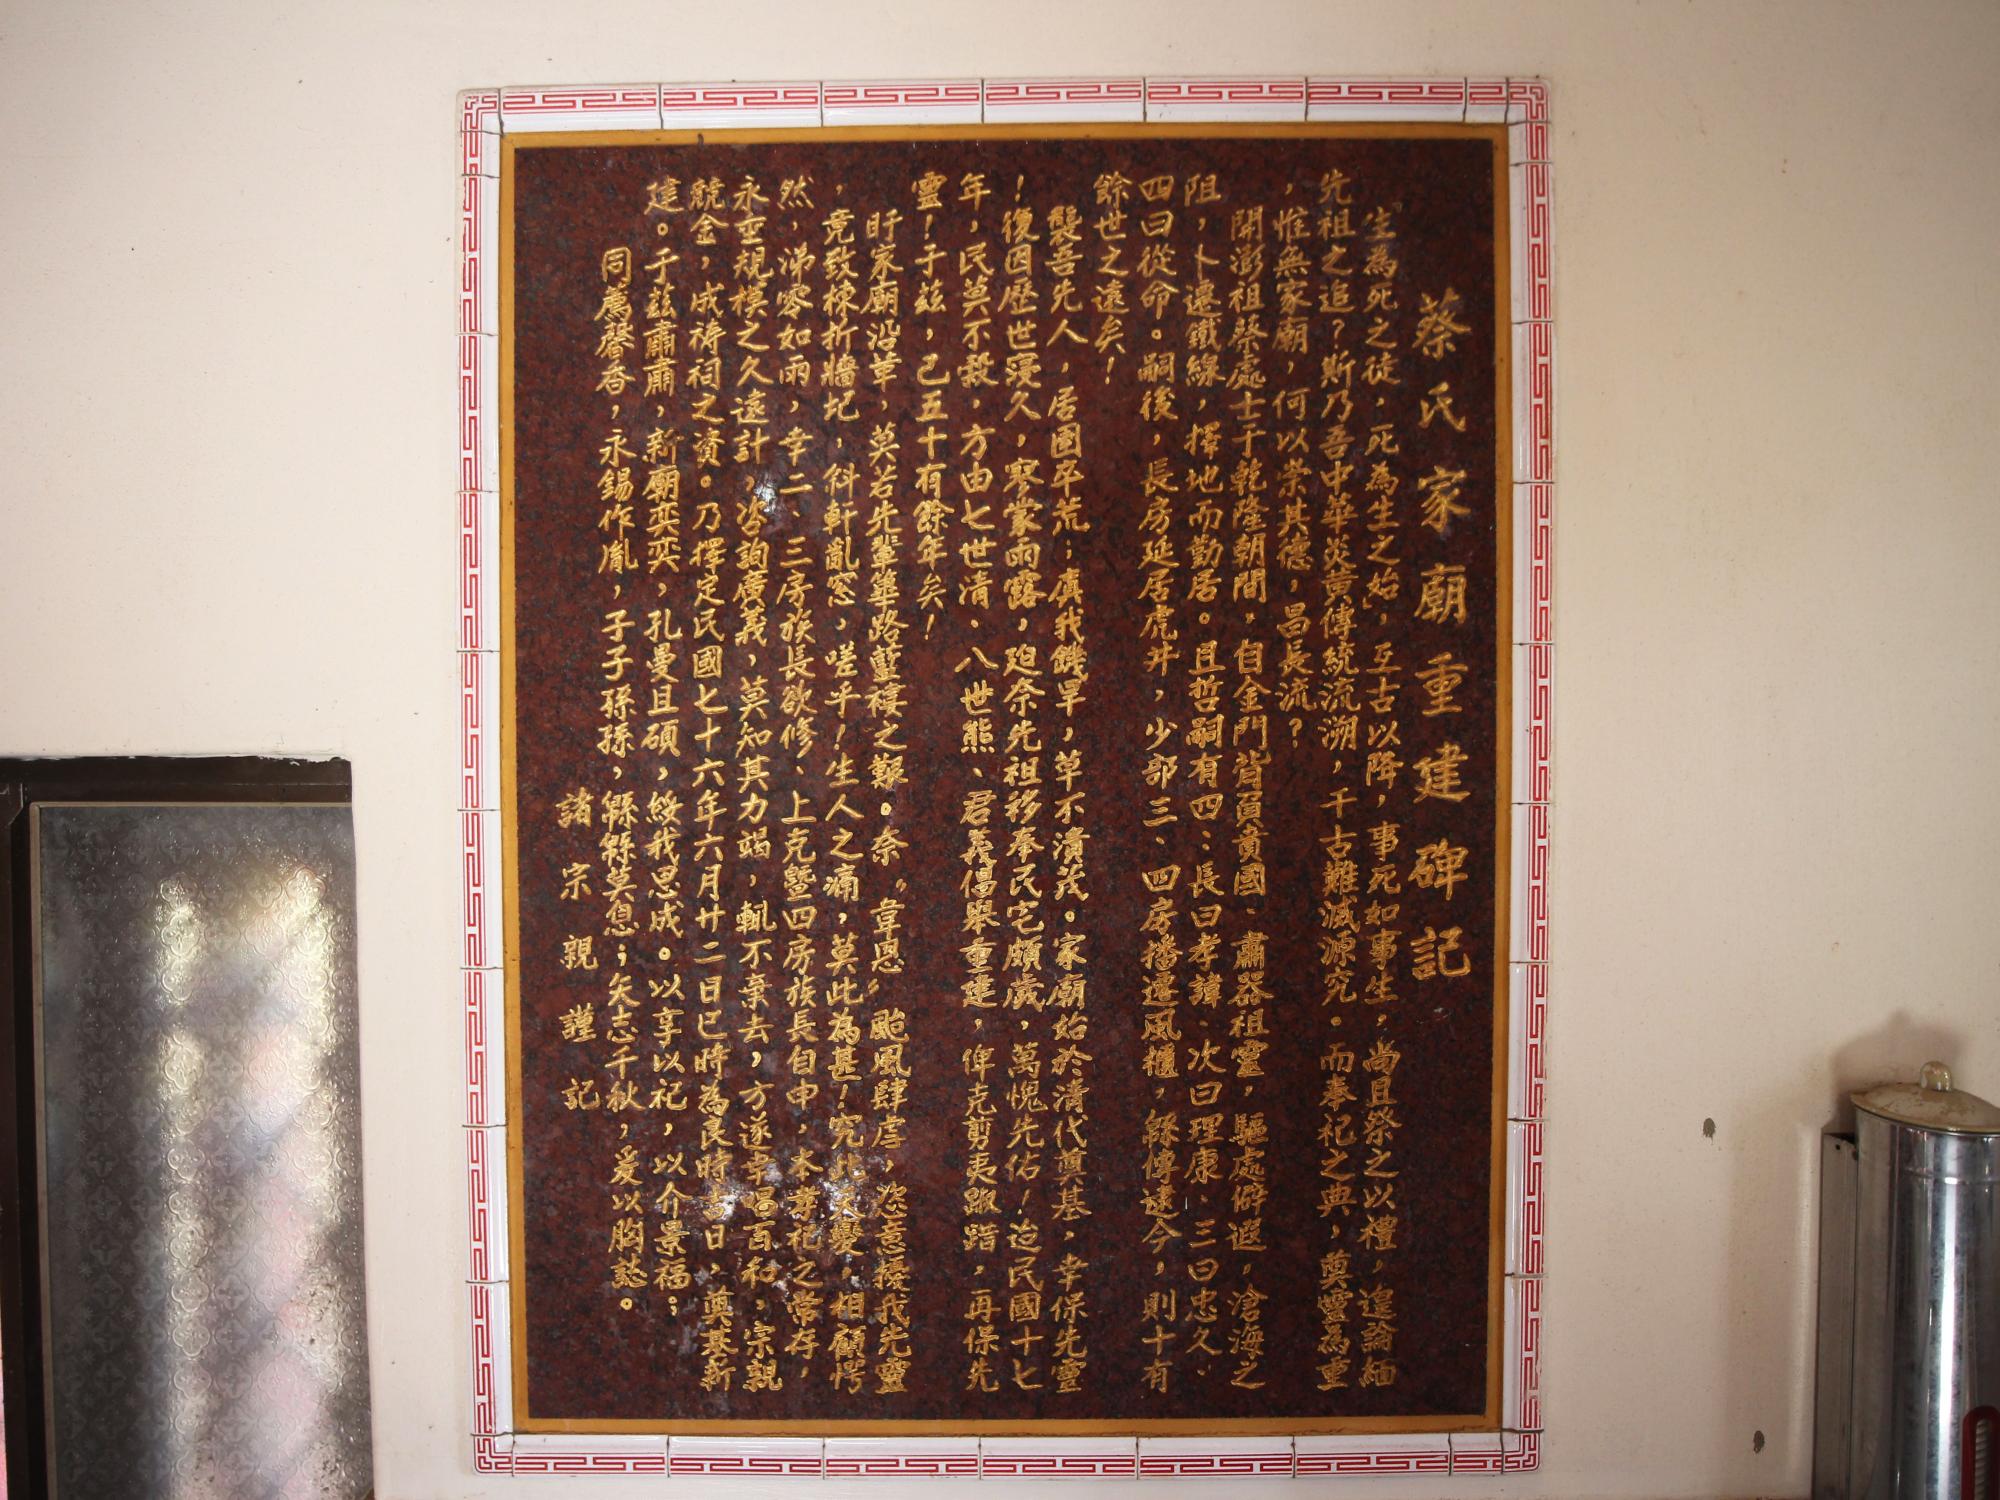 蔡氏家廟重建碑記
「生為死之徒，死為生之始」，亙古以降，事死如事生，尚且祭之以禮，遑論緬
先祖之追？斯乃吾中華炎黃傳統流溯，千古難滅源究。而奉祀之典，奠靈為重
，惟無家廟，何以崇其德，昌長流？
開澎祖蔡處士于乾隆朝間，自金門背首賁國、肅器祖靈，驅處僻遐，滄海之
阻，卜遷鐵線，擇地而勤居。且哲嗣有四：長曰孝諱、次曰理康、三曰忠久、
四曰從命。嗣後，長房延居虎井，少部三、四房播遷風櫃，緜傳逮今，則十有
餘世之遠矣！
襲吾先人，居圉卒荒；瘨我饑旱，草不潰茂。家廟始於清代奠基，幸保先靈
！復因歷世寖久，寒蒙雨露，廹奈先祖移奉民宅頗歲，萬愧先佑！迨民國十七
年，民莫不穀，方由七世清、八世熊、君義倡舉重建，俾克剪夷踧踖，再保先
靈！于茲，已五十有餘年矣！
盱家廟沿革，莫若先輩篳路藍褸之艱。奈〝韋恩〞颱風肆虐，恣意擾我先靈
，竟致棟折牆圮，斜軒亂窓，嗟乎！生人之痛，莫此為甚！究此災變，相顧愕
然，涕零如雨，幸二、三房族長欲修、上克暨四房族長自申，本孝祀之常存，
永垂規模之久遠計，咨詢廣義，莫知其力竭，輒不棄去，方遂幸唱百和，宗親
競金，成禱祠之資。乃擇定民國七十六年六月廿二日巳時為良時吉日，奠基新
建。于茲肅肅，新廟奕奕，孔曼且碩，綏我思成。以享以祀，以介景福；
同薦馨香，永錫作胤，子子孫孫，緜緜莫息；矢志千秋，爰以胸誌。
諸宗親謹記